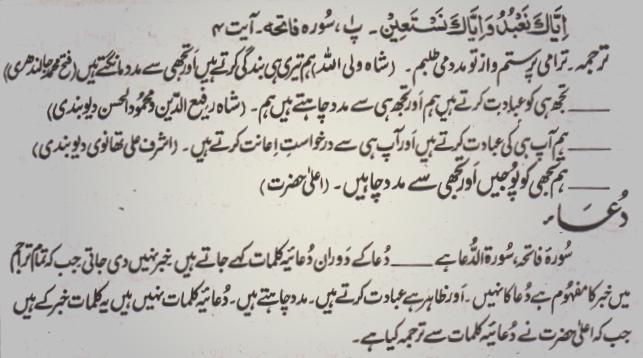 اِیَّاکَ نَعْبُدُ وَاِیَّاکَ نَسْتَعِیْن۔ پ۱، سُورہ فاتحہ۔ آیت ۴
ترجمہ۔ ترامی پرستم واز تو مدد می طلبم۔ (شاہ ولی اللہ) ہم تیری ہی بندگی کرتے ہیں اَور تجھی سے مدد مانگتے ہیں (فتح محمد جالندھری)
____ تجھ ہی کو عبادت کرتے ہیں ہم اَور تجھ ہی سے مدد چاہتے ہیں ہم۔ (شاہ رفیع الدّین و محمود الحسن دیوبندی)
____ ہم آپ ہی کی عبادت کرتے ہیں اَور آپ ہی سے درخواستِ اِعانت کرتے ہیں۔ (اشرف علی تھانوی دیوبندی)
____ ہم تجھی کو پُوجیں اَور تجھی سے مدد چاہیں۔ (اعلیٰ حضرت)
دُعاء
سُورۂ فاتحہ، سُورۃ الدُّعا ہے ____ دُعا کے دَوران دُعائیہ کلمات کہے جاتے ہیں خبر نہیں دی جاتی جب کہ تمام تراجم
میں خبر کا مفہُوم ہے دُعا کا نہیں۔ اَور ظاہر ہے عبادت کرتے ہیں۔ مدد چاہتے ہیں۔ دُعائیہ کلمات نہیں ہیں یہ کلمات خبر کے ہیں
جب کہ اعلیٰ حضرت نے دُعائیہ کلمات سے ترجمہ کیا ہے۔